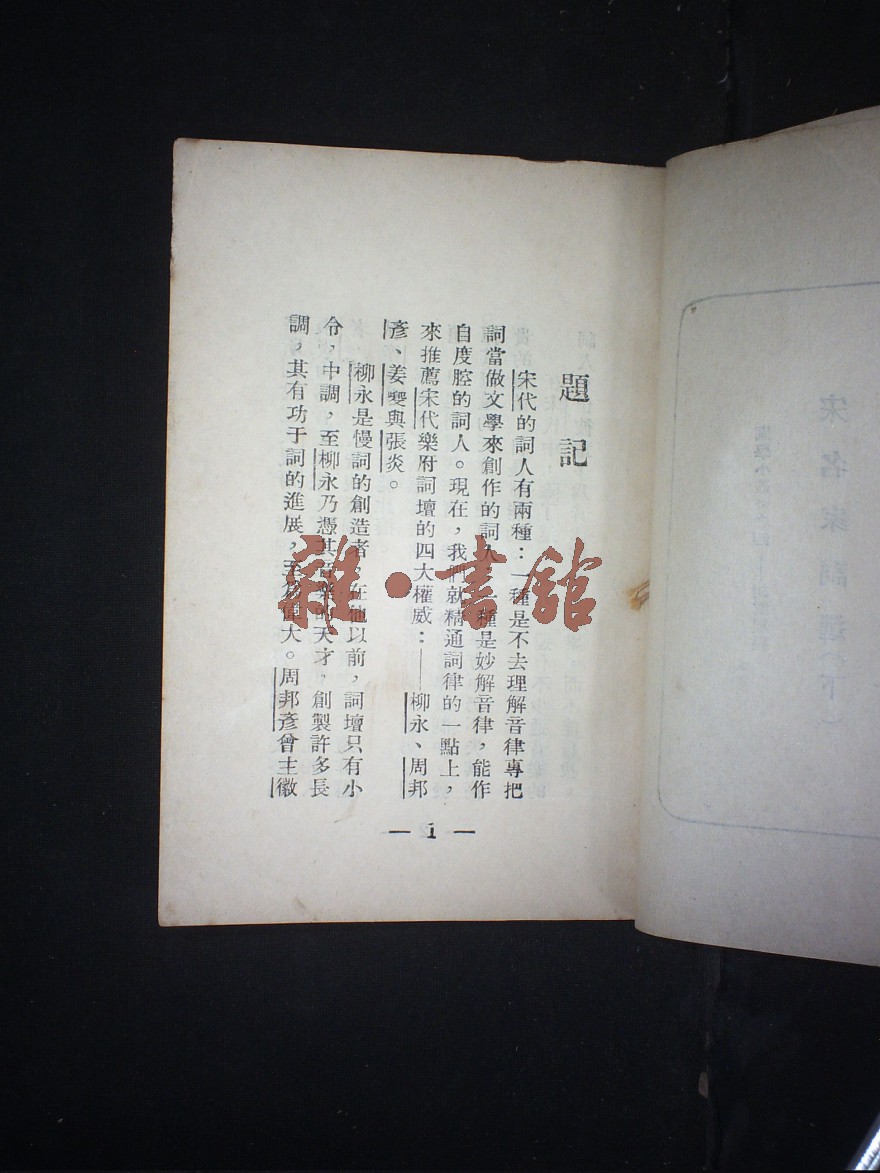 題記
宋代的詞人有兩種：一種是不去理解音律專把
詞當做文學來創作的詞人，一種是妙解音律，能作
自度腔的詞人。現在，我們就精通詞律的一點上，
來推薦宋代樂府詞壇的四大權威：——柳永、周邦
彥、姜夔與張炎。
柳永是慢詞的創造者，在他以前，詞壇只有小
令，中調，至柳永乃憑其音樂的天才，創製許多長
調，其有功于詞的進展，至為偉大。周邦彥曾主徽
— 1 —
雜·書館
宋名家詞選（下）